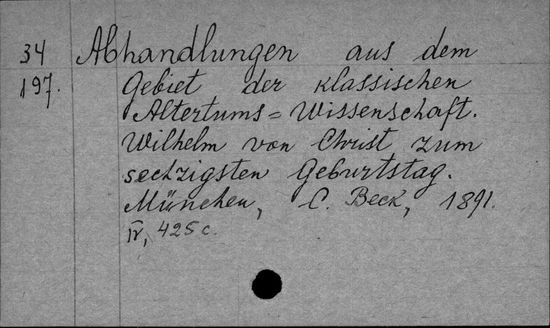 34 Abhandlungen aus dem
197. Gebiet der klassischen
Altertums=Wissenschaft.
Wilhelm von Christ zum
sechzigsten Geburtstag.
München, C. Beck, 1891.
IV, 425 c.